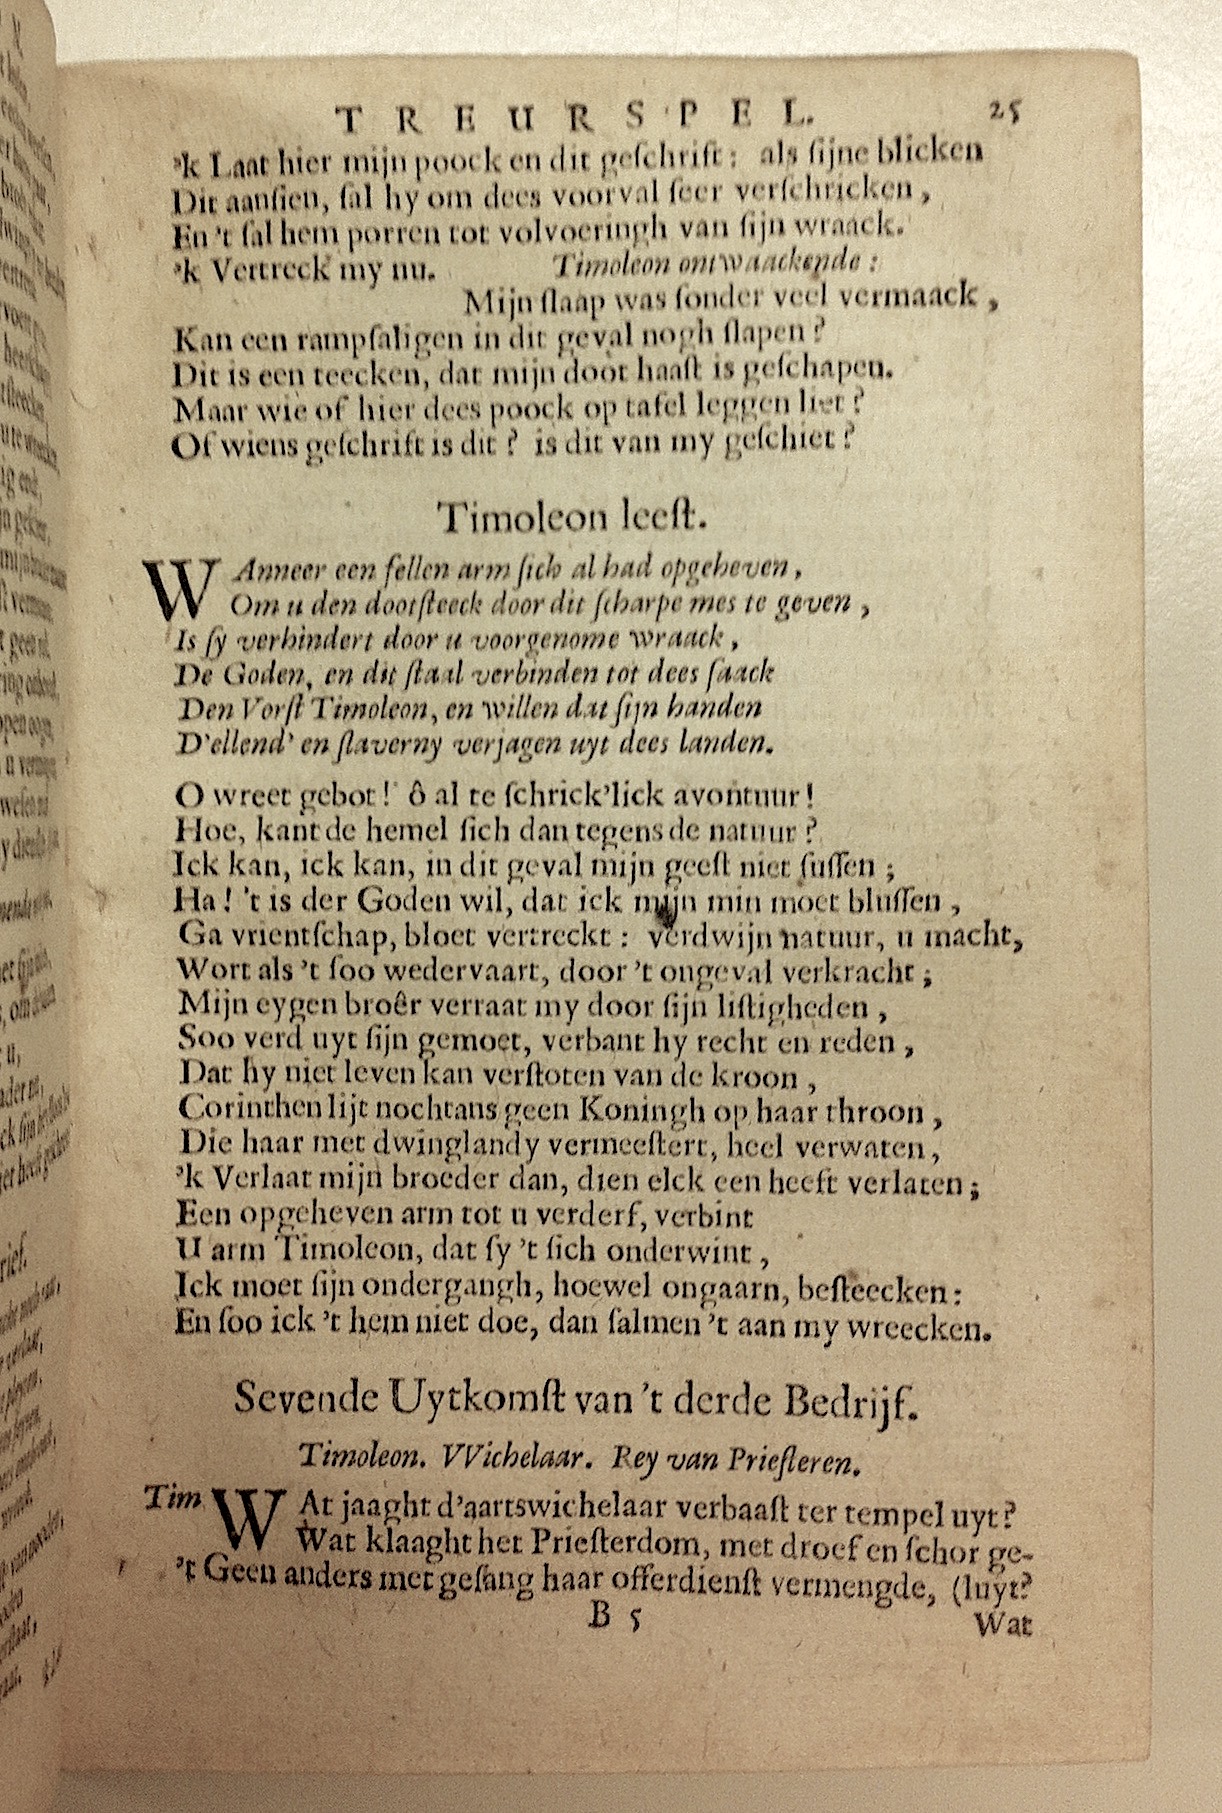 TREURSPEL. 25
'k Laat hier mijn poock en dit geſchrift: als ſijne blicken
Dit aanſien, ſal hy om dees voorval ſeer verſchricken,
En 't ſal hem porren tot volvoeringh van ſijn wraack.
'k Vertreck my nu. Timoleon ontwaackende:
Mijn ſlaap was ſonder veel vermaack,
Kan een rampſaligen in dit geval nogh ſlapen?
Dit is een teecken, dat mijn doot haaſt is geſchapen.
Maar wie of hier dees poock op tafel leggen liet?
Of wiens geſchrift is dit? is dit van my geſchiet?
Timoleon leeſt.
WAnneer een fellen arm ſich al had opgeheven,
Om u den dootſteeck door dit ſcharpe mes te geven,
Is ſy verhindert door u voorgenome wraack,
De Goden, en dit ſtaal verbinden tot dees ſaack
Den Vorſt Timoleon, en willen dat ſijn handen
D'ellend' en ſlaverny verjagen uyt dees landen.
O wreet gebot! ô al te ſchrick'lick avontuur!
Hoe, kant de hemel ſich dan tegens de natuur?
Ick kan, ick kan, in dit geval mijn geeſt niet ſuſſen;
Ha! 't is der Goden wil, dat ick mijn min moet bluſſen,
Ga vrientſchap, bloet vertreckt: verdwijn natuur, u macht,
Wort als 't ſoo wedervaart, door 't ongeval verkracht;
Mijn eygen broêr verraat my door ſijn liſtigheden,
Soo verd uyt ſijn gemoet, verbant hy recht en reden,
Dat hy niet leven kan verſtoten van de kroon,
Corinthen lijt nochtans geen Koningh op haar throon,
Die haar met dwinglandy vermeeſtert, heel verwaten,
'k Verlaat mijn broeder dan, dien elck een heeft verlaten;
Een opgeheven arm tot u verderf, verbint
U arm Timoleon, dat ſy 't ſich onderwint,
Ick moet ſijn ondergangh, hoewel ongaarn, beſteecken:
En ſoo ick 't hem niet doe, dan ſalmen 't aan my wreecken.
Sevende Uytkomſt van 't derde Bedrijf.
Timoleon. VVichelaar. Rey van Prieſteren.
Tim WAt jaaght d'aartswichelaar verbaaſt ter tempel uyt?
Wat klaaght het Prieſterdom, met droef en ſchor ge-
't Geen anders met geſang haar offerdienſt vermengde, (luyt?
B 5 Wat